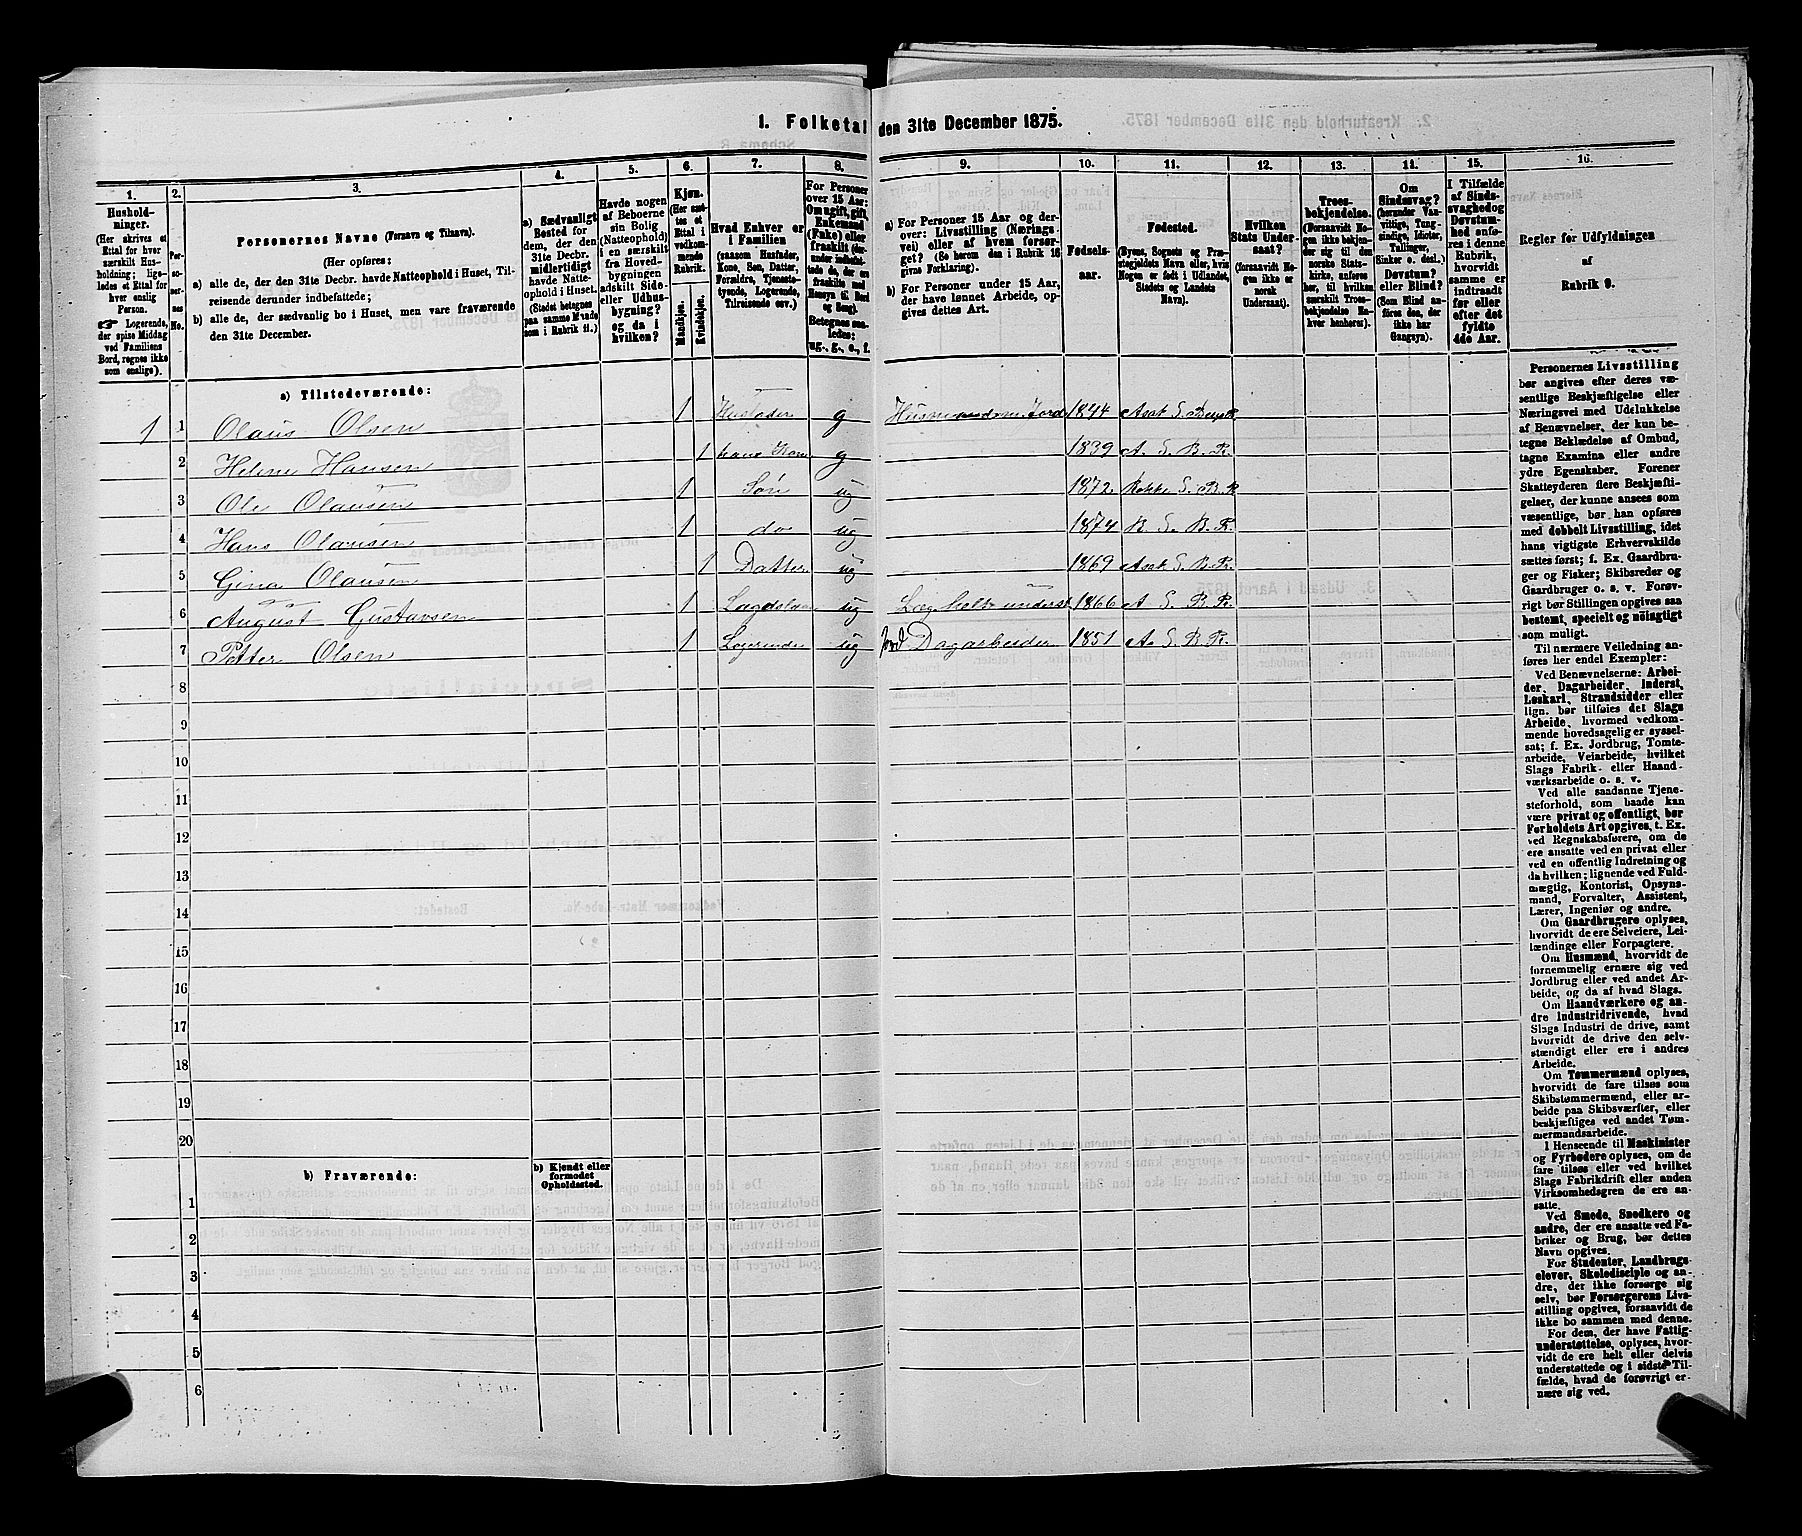 1. Folketal den 31te December 1875.
1.
2.
3.
4.
5.
6.
7.
8.
9.
10.
11.
12.
13.
14.
15.
16.
Hushold-
ninger.
(Her skrives et
Ettal for hver
særskilt Hus-
holdning; lige-
ledes et Ettal for
hver enslig
Person.
☞ Logerende,
der spise Middag
ved Familiens
Bord, regnes ikke
som enslige).
Per-
so-
ner-
nes
No.
Personernes Navne (Fornavn og Tilnavn).
(Her opføres:
a) alle de, der den 31te Decbr. havde Natteophold i Huset, Til-
reisende derunder indbefattede;
b) alle de, der sædvanlig bo i Huset, men vare fraværende
den 31te December.
a) Sædvanligt
Bosted for
dem, der den
31te Decbr.
midlertidigt
havde Natte-
ophold i Huset.
(Stedet betegnes
paa samme Maade
som i Rubrik 11.)
Havde nogen
af Beboerne
sin Bolig
(Natteophold)
i en særskilt
fra Hoved-
bygningen
adskilt Side-
eller Udhus-
bygning?
og da i
hvilken?
Kjøn.
(Her sæt-
tes et
Ettal i
vedkom-
mende
Rubrik.
Mandkjøn.
Kvindekjøn.
Hvad Enhver er
i Familien
(saasom Husfader,
Kone, Søn, Datter,
Forældre, Tjeneste-
tyende, Logerende,
Tilreisende osv.)
For Personer
over 15 Aar:
Om ugift, gift,
Enkemand
(Enke) eller
fraskilt (der-
under indbefat-
tede de, der ere
fraskilte med
Hensyn til Bord
og Seng).
Betegnes saa-
ledes:
ug., g., e., f.
a) For Personer 15 Aar og der-
over: Livsstilling (Nærings-
vei) eller af hvem forsør-
get? (Se herom den i Rubrik 16
givne Forklaring).
b) For Personer under 15 Aar,
der have lønnet Arbeide, op-
gives dettes Art.
Fødsels-
aar.
Fødested.
(Byens, Sognets og Præ-
stegjeldets Navn eller, hvis
Nogen er født i Udlandet,
Stedets og Landets
Navn).
Hvilken
Stats Under-
saat?
(forsaavidt No-
gen ikke er
norsk
Undersaat).
Troes-
bekjendelse.
(Forsaavidt No-
gen ikke bekjen-
der sig til den
norske Stats-
kirke, anføres
her, til hvilken
særskilt Troes-
bekjendelse En-
hver henhører).
Om
Sindssvag?
(herunder Van-
vittige, Tung-
sindige, Idioter,
Tullinger,
Sinker o. desl.)
Døvstum?
eller Blind?
(Som Blind an-
føres den, der
ikke har
Gangsyn).
I Tilfælde
af Sinds-
svaghed og
Døvstum-
hed enfø-
res i denne
Rubrik,
hvorvidt
samme er
indtraadt
før eller
efter det
fyldte
4de Aar.
Regler for Udfyldningen
af
Rubrik 9.
a) Tilstedeværende:
1 1 Olaus Olsen 1 Husfader g Husmand m. Jord 1844
2 Helene Hansen 1 hans Kone g 1839 A. S. B. R.
3 Ole Olausen 1 Søn ug 1872 Rokke S. B. R
4 Hans Olausen 1 do ug 1874 R S. B. R.
5 Gina Olausen 1 Datter ug 1869 Asak S. B. R.
6 August Gustavsen 1 ug 1866 A S. B. R.
7 Petter Olsen 1 Logerende ug Dagarbeider 1851 A. S. B. R.
8
9
10
11
12
13
14
15
16
17
18
19
20
b) Fraværende:
b) Kjendt eller
formodet
Opholdssted.
1
2
3
4
5
6
Personernes Livsstilling
bør angives efter deres væ-
sentlige Beskjæftigelse eller
Næringsvei med Udelukkelse
af Benævnelser, der kun be-
tegne Beklædelse af Ombud,
tagne Examina eller andre
ydre Egenskaber. Forener
Skatteyderen flere Beskjæfti-
gelser, der kunne ansees som
væsentlige, bør han opføres
med dobbelt Livsstilling, idet
hans vigtigste Erhvervskilde
sættes først; f. Ex. Gaardbru-
ger og Fisker; Skibsreder og
Gaardbruger o. s. v. Forøv-
rigt bør Stillingen opgives saa
bestemt, specielt og nøiagtigt
som muligt.
Til nærmere Veiledning an-
føres her endel Exempler:
Ved Benævnelserne: Arbei-
der, Dagarbeider, Inderst,
Løskarl, Strandsidder eller
lign. bør tilføies det Slags
Arbeide, hvormed vedkom-
mende hovedsagelig er syssel-
sat; f. Ex. Jordbrug, Tomte-
arbeide, Veiarbeide, hvilket
Slags Fabrik- eller Haand-
værksarbeide o. s. v.
Ved alle saadanne Tjene-
steforhold, som baade kan
være privat og offentligt, bør
Forholdets Art opgives, t. Ex.
ved Regnskabsførere, om de
ere ansatte ved en privat eller
ved en offentlig Indretning og
da hvilken; lignende ved Fuld-
mægtig, Kontorist, Opsyns-
mand, Forvalter, Assistent,
Lærer, Ingeniør og andre.
Om Gaardbrugere oplyses,
hvorvidt de ere Selveiere, Lei-
lændinge eller Forpagtere.
Om Husmænd, hvorvidt de
fornemmelig ernære sig ved
Jordbrug eller ved andet Ar-
beide, og da af hvad Slags.
Om Haandværkere og an-
dre industridrivende, hvad
Slags Industri de drive, samt
hvorvidt de drive den selv-
stændigt eller ere i andres
Arbeide.
Om Tømmermænd oplyses,
hvorvidt de fare tilsøs som
Skibstømmermænd, eller ar-
beide paa Skibsværfter, eller
beskjæftiges ved andet Tøm-
mermandsarbeide.
I Henseende til Maskinister
og Fyrbødere oplyses, om de
fare tilsøs eller ved hvilket
Slags Fabrikdrift eller anden
Virksomhedsgren de ere an-
satte.
Ved Smede, Snedkere og
andre, der ere ansatte ved Fa-
briker og Brug, bør dettes
Navn opgives.
For Studenter, Landbrugs-
elever, Skoledisciple og an-
dre, der ikke forsørge sig
selv, bør Forsørgerens Livs-
stilling opgives, forsaavidt de
ikke bo sammen med denne.
For dem, der have Fattig-
understøttelse, oplyses, hvor-
vidt de ere helt eller delvis
understøttede og i sidste Til-
fælde, hvad de forøvrigt er-
nære sig ved.